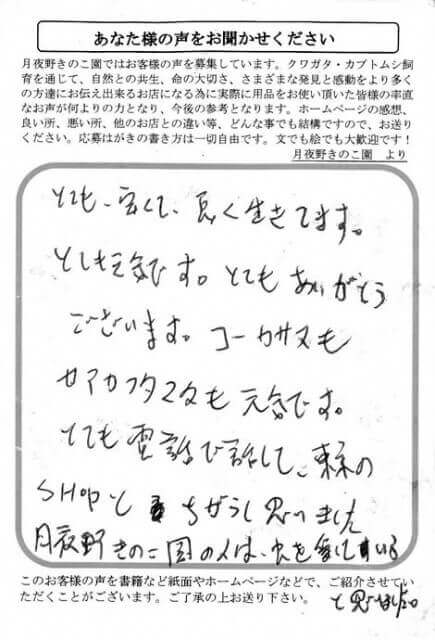 あなた様の声をお聞かせください
月夜野きのこ園ではお客様の声を募集しています。クワガタ・カブトムシ飼
育を通じて、自然との共生、命の大切さ、さまざまな発見と感動をより多く
の方達にお伝え出来るお店になる為に実際に用品をお使い頂いた皆様の率直
なお声が何よりの力となり、今後の参考となります。ホームページの感想、
良い所、悪い所、他のお店との違い等、どんな事でも結構ですので、お送り
ください。応募はがきの書き方は一切自由です。文でも絵でも大歓迎です！
月夜野きのこ園 より
とても、安くて、長く生きてます。
とても元気です。とても ありがとう
ございます。コーカサスも
も 元気です。
とても 電話で話して、東京の
SHOPと ちがうと思いました
月夜野きのこ園の人は、虫を愛している
と思いました
このお客様の声を書籍など紙面やホームページなどで、ご紹介させてい
ただくことがございます。ご了承の上お送り下さい。